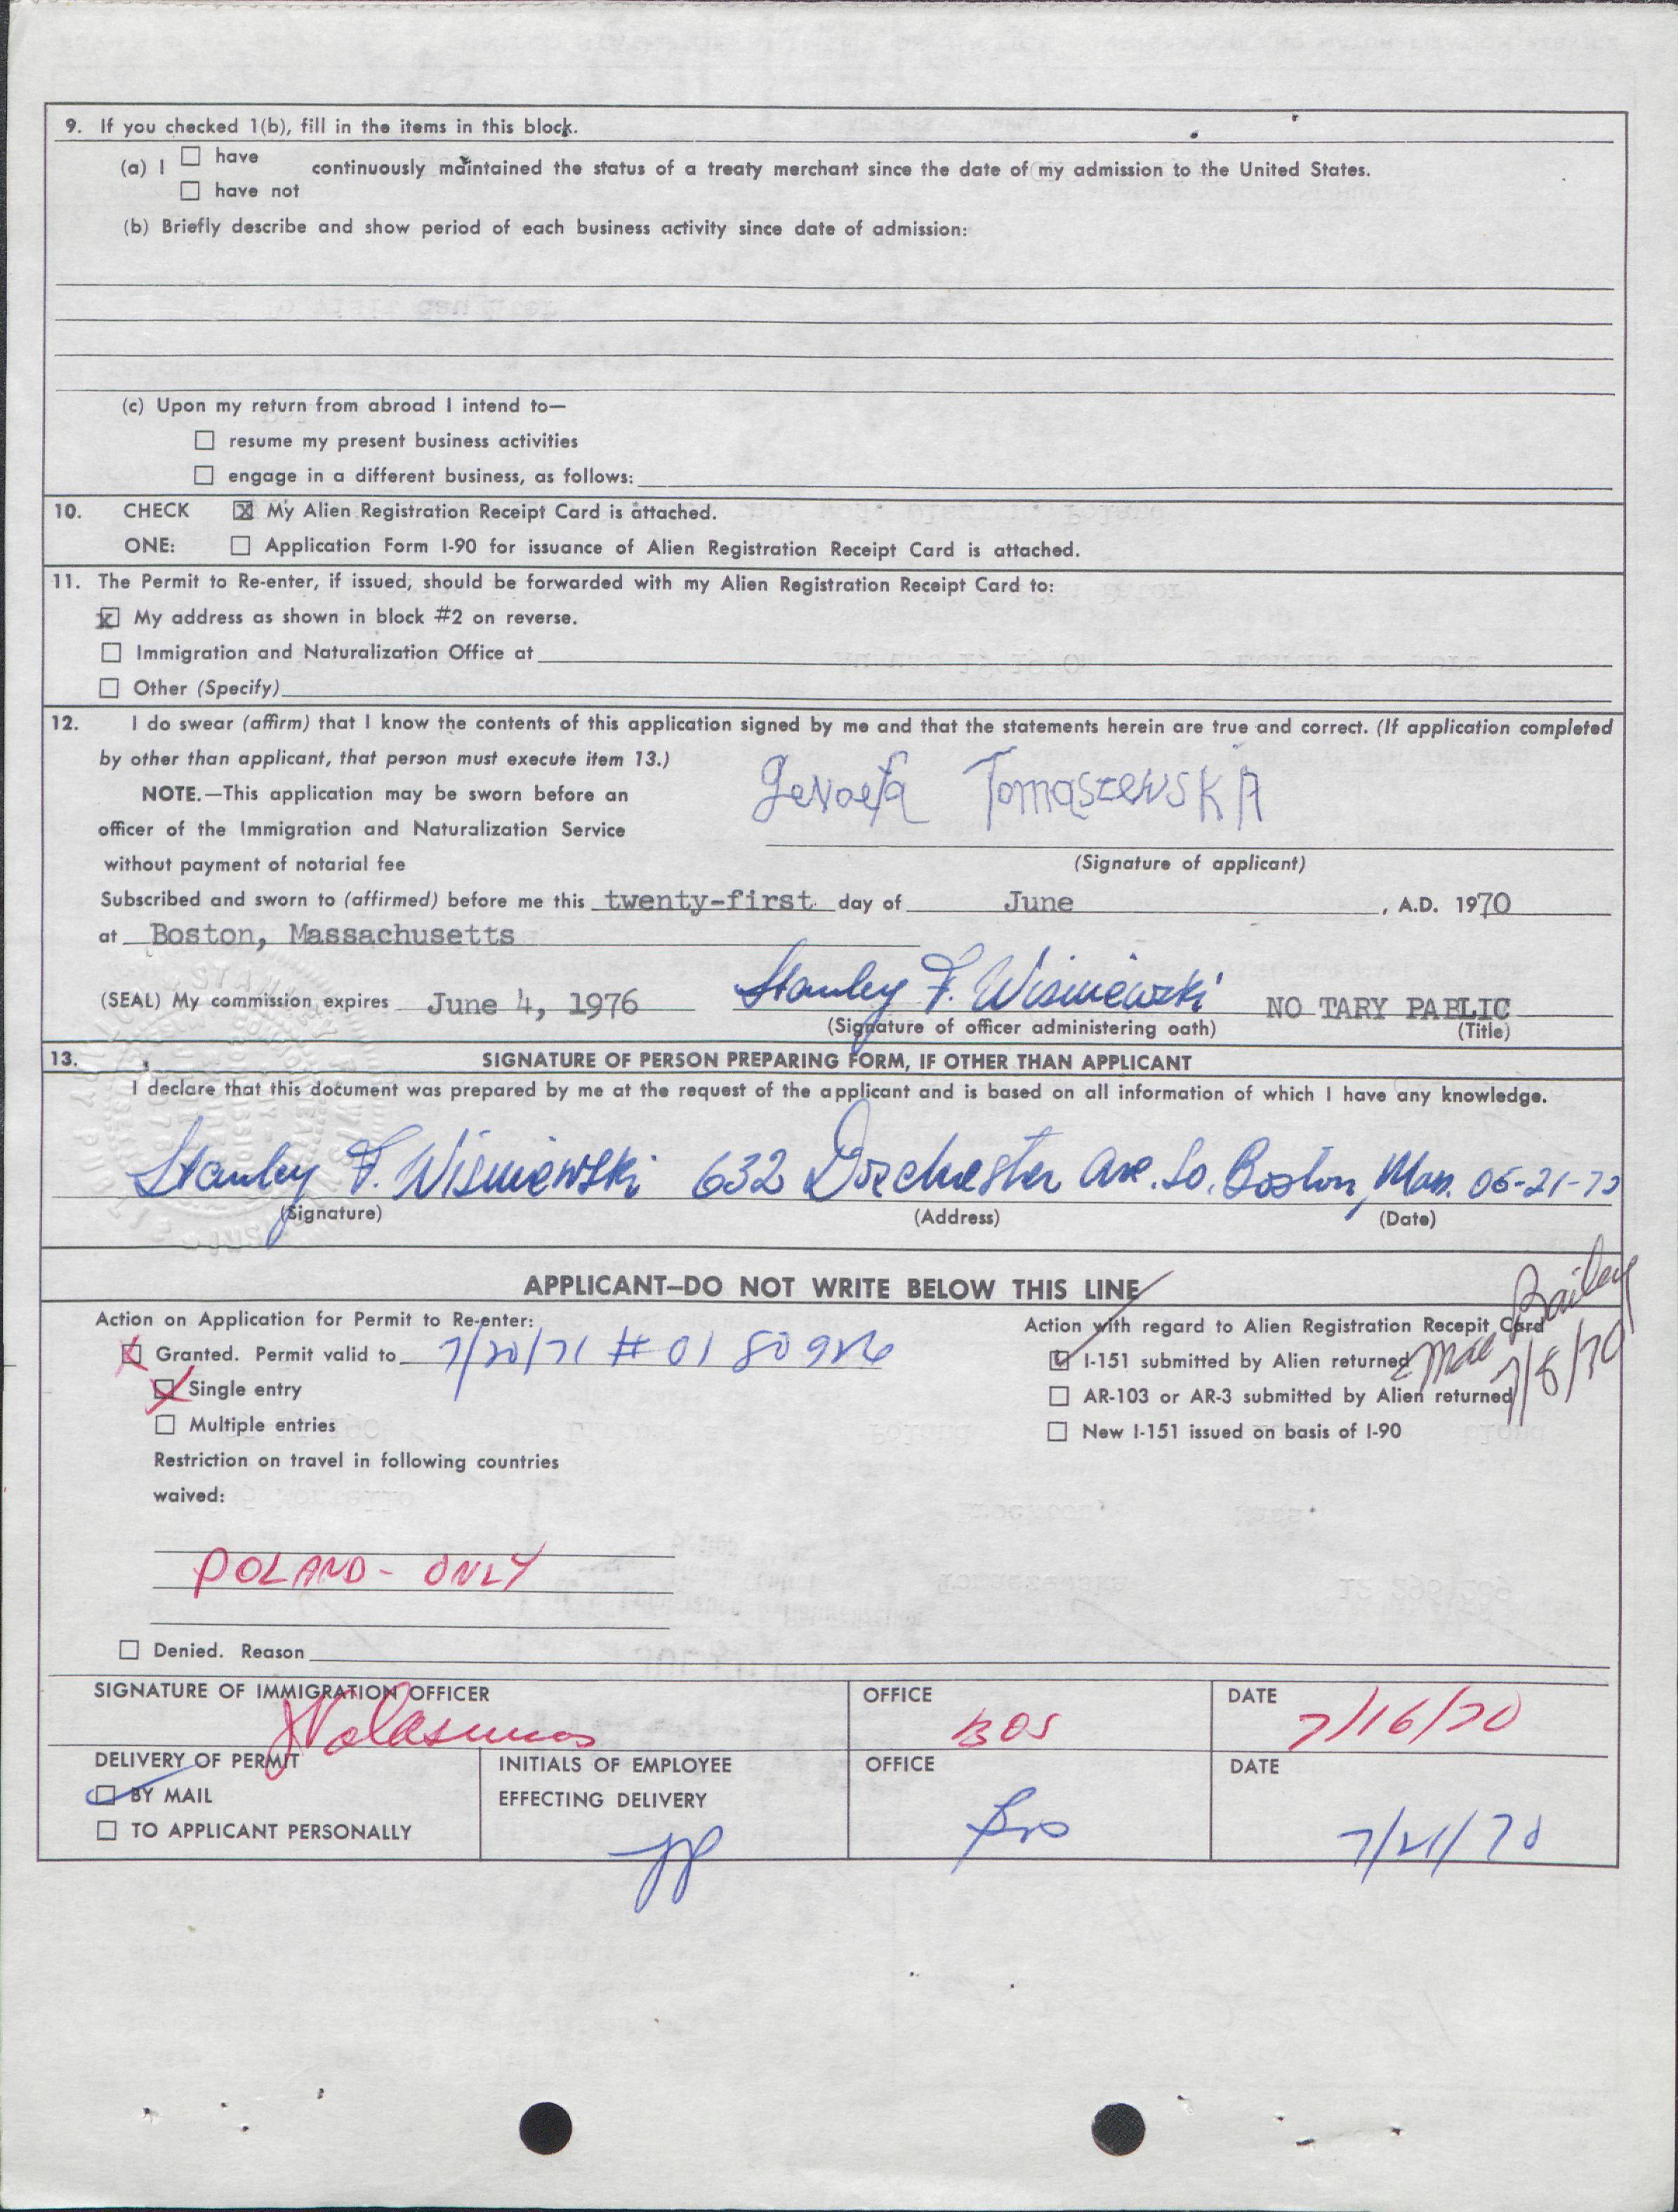 9. If you checked 1(b), fill in the items in this block.
(a) I ☐ have
☐ have not
continuously maintained the status of a treaty merchant since the date of my admission to the United States.
(b) Briefly describe and show period of each business activity since date of admission:
(c) Upon my return from abroad I intend to—
☐ resume my present business activities
☐ engage in a different business, as follows:
10. CHECK ☒ My Alien Registration Receipt Card is attached.
ONE: ☐ Application Form I-90 for issuance of Alien Registration Receipt Card is attached.
11. The Permit to Re-enter, if issued, should be forwarded with my Alien Registration Receipt Card to:
☒ My address as shown in block #2 on reverse.
☐ Immigration and Naturalization Office at
☐ Other (Specify)
12. I do swear (affirm) that I know the contents of this application signed by me and that the statements herein are true and correct. (If application completed
by other than applicant, that person must execute item 13.)
NOTE.—This application may be sworn before an
officer of the Immigration and Naturalization Service
without payment of notarial fee
Genoefa Tomaszewska
(Signature of applicant)
Subscribed and sworn to (affirmed) before me this twenty-first day of June, A.D. 1970
at Boston, Massachusetts
(SEAL) My commission expires June 4, 1976 Stanley F. Wisniewski NO TARY PABLIC
(Signature of officer administering oath) (Title)
13. SIGNATURE OF PERSON PREPARING FORM, IF OTHER THAN APPLICANT
I declare that this document was prepared by me at the request of the applicant and is based on all information of which I have any knowledge.
Stanley F. Wisniewski 632 Dorchester Ave. So. Boston, Mass. 06-21-70
(Signature) (Address) (Date)
APPLICANT—DO NOT WRITE BELOW THIS LINE
Action on Application for Permit to Re-enter:
☒ Granted. Permit valid to 7/20/71 # 0180926
☒ Single entry
☐ Multiple entries
Restriction on travel in following countries
waived:
POLAND - ONLY
☐ Denied. Reason
Action with regard to Alien Registration Recepit Card
☑ I-151 submitted by Alien returned Mae Bailey 7/8/70
☐ AR-103 or AR-3 submitted by Alien returned
☐ New I-151 issued on basis of I-90
SIGNATURE OF IMMIGRATION OFFICER
OFFICE BOS
DATE 7/16/70
DELIVERY OF PERMIT
☑ BY MAIL
☐ TO APPLICANT PERSONALLY
INITIALS OF EMPLOYEE
EFFECTING DELIVERY
OFFICE Bos
DATE 7/21/70